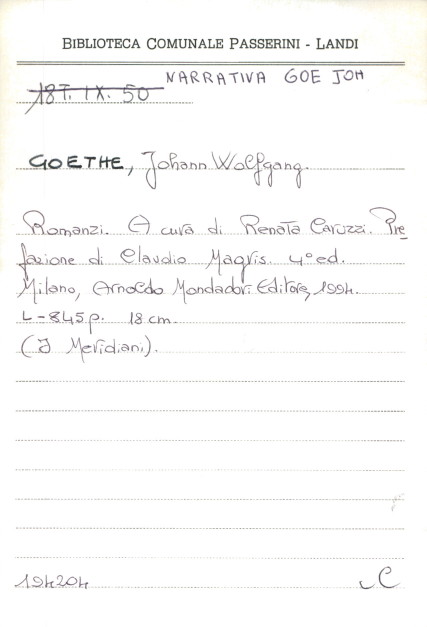 BIBLIOTECA COMUNALE PASSERINI - LANDI
NARRATIVA GOE JOH
18T. IX. 50
GOETHE, Johann Wolfgang.
Romanzi. A cura di Renata Caruzzi. Pre=
fazione di Claudio Magris. 4° ed.
Milano, Arnoldo Mondadori Editore, 1994.
L-845 p. 18 cm.
(I Meridiani).
194204 C